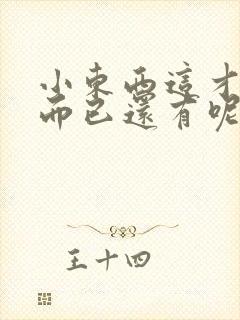 小東西這才
而已還有呢
王十四